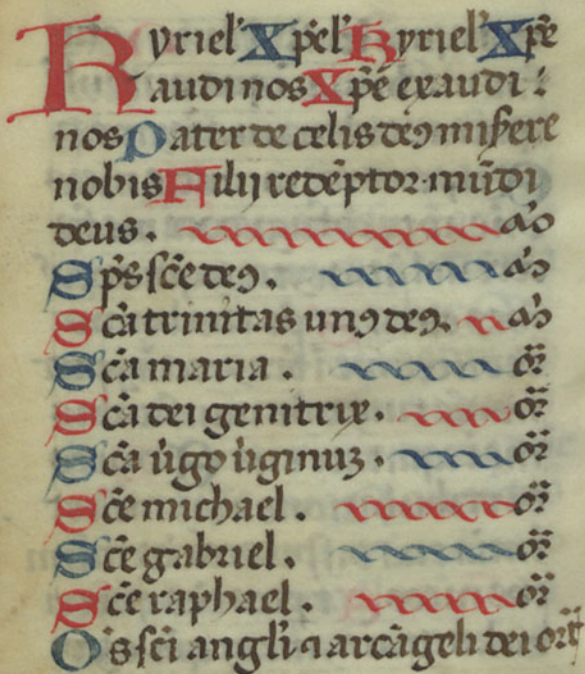 Kyriel' Xp̄el' Kyriel' Xp̄e
audi nos Xp̄e exaudi
nos Pater de celis deꝰ miſere
nobis Filij redēptor mūdi
deus. m̄o
Sp̄s ſc̄e deꝰ. m̄o
Sc̄a trinitas unꝰ deꝰ. m̄o
Sc̄a maria. or̄
Sc̄a dei genitrix. or̄
Sc̄a u̇go u̇ginuꝫ. or̄
Sc̄e michael. or̄
Sc̄e gabriel. or̄
Sc̄e raphael. or̄
O's ſc̄i angl'i ⁊ arcāgeli dei or̄